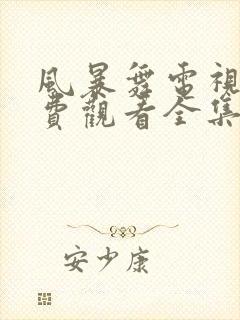 風暴舞電視
費觀看全集
安少康